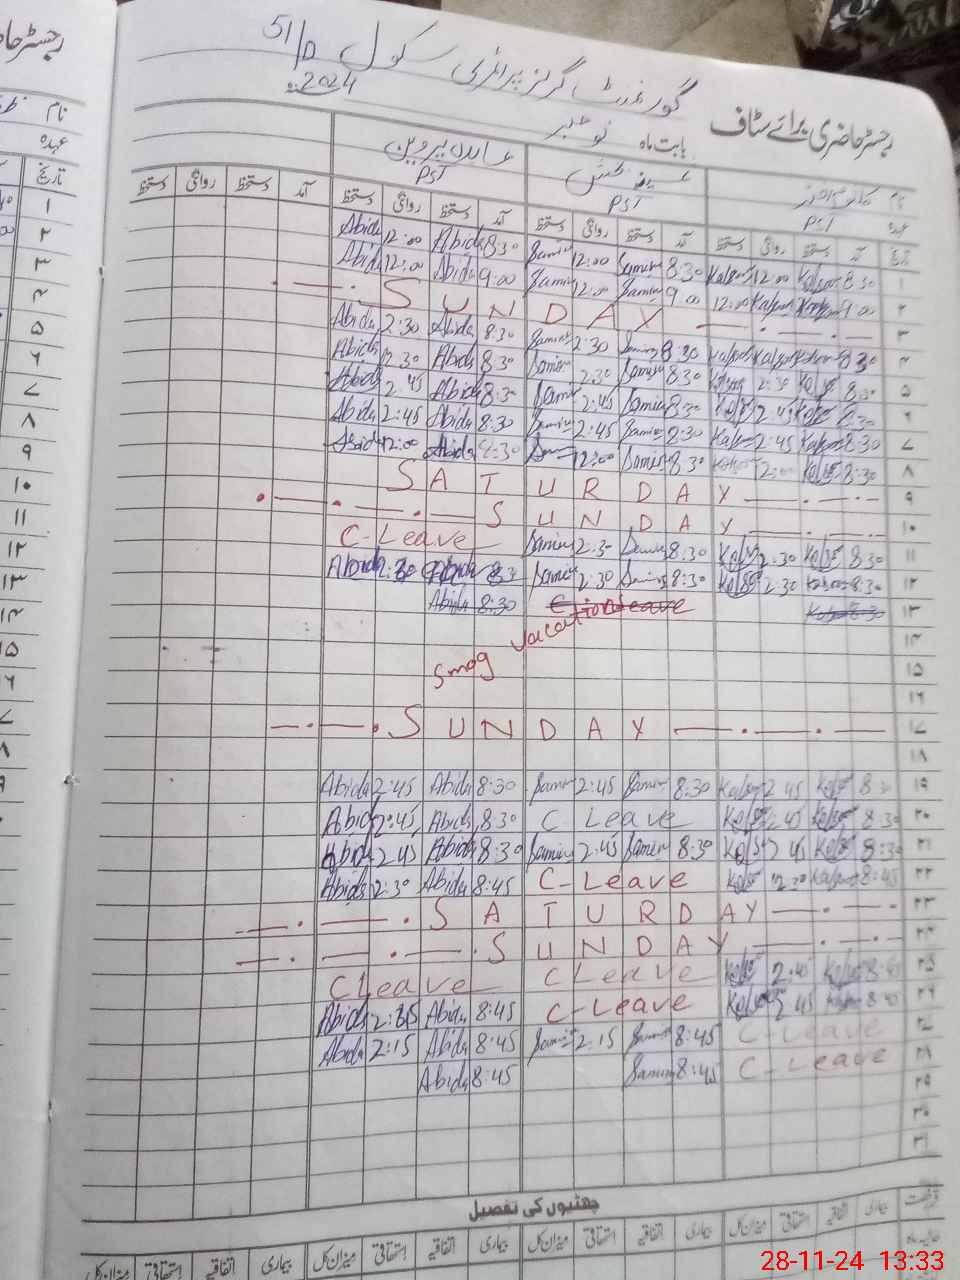 گورنمنٹ گرلز پرائمری سکول 51/D
رجسٹر حاضری برائے سٹاف
بابت ماہ نومبر 2024
نام
عابدہ پروین
عہدہ PST PST PST
تاریخ آمد دستخط روانگی دستخط آمد دستخط روانگی دستخط آمد دستخط روانگی دستخط آمد دستخط روانگی دستخط
۱ 8:30 Kalsoom 12:00 Kalsoom 8:30 Samina 12:00 Samina 8:30 Abida 12:00 Abida
۲ 9:00 Kalsoom 12:00 9:00 Samina 12:00 Samina 9:00 Abida 12:00 Abida
۳ SUNDAY
۴ 8:30 Kalsoom Kalsoom 8:30 Samina 2:30 Samina 8:30 Abida 2:30 Abida
۵ 8:30 Kalsoom 2:30 Kalsoom 8:30 Samina 2:30 Samina 8:30 Abida 2:30 Abida
۶ 8:30 Kalsoom 2:45 Kalsoom 8:30 Samina 2:45 Samina 8:30 Abida 2:45 Abida
۷ 8:30 Kalsoom 2:45 Kalsoom 8:30 Samina 2:45 Samina 8:30 Abida 2:45 Abida
۸ 8:30 Kalsoom 12:00 Kalsoom 8:30 Samina 12:00 Samina 8:30 Abida 12:00 Abida
۹ SATURDAY
۱۰ SUNDAY
۱۱ 8:30 Kalsoom 2:30 Kalsoom 8:30 Samina 2:30 Samina C-Leave
۱۲ 8:30 Kalsoom 2:30 Kalsoom 8:30 Samina 2:30 Samina 8:30 Abida 2:30 Abida
۱۳ 8:30 Abida 8:30
۱۴ Smog vacation
۱۵
۱۶
۱۷ SUNDAY
۱۸
۱۹ 8:30 Kalsoom 2:45 Kalsoom 8:30 Samina 2:45 Samina 8:30 Abida 2:45 Abida
۲۰ 8:30 Kalsoom 2:45 Kalsoom C Leave 8:30 Abida 2:45 Abida
۲۱ 8:30 Kalsoom 2:45 Kalsoom 8:30 Samina 2:45 Samina 8:30 Abida 2:45 Abida
۲۲ 8:45 Kalsoom 12:30 Kalsoom C-Leave 8:45 Abida 12:30 Abida
۲۳ SATURDAY
۲۴ SUNDAY
۲۵ 8:45 Kalsoom 2:45 Kalsoom C Leave C Leave
۲۶ 8:45 Kalsoom 2:45 Kalsoom C-Leave 8:45 Abida Abida
۲۷ C-Leave 8:45 Samina 2:15 Samina 8:45 Abida 2:15 Abida
۲۸ C-Leave 8:45 Samina 8:45 Abida
۲۹
۳۰
۳۱
چھٹیوں کی تفصیل
بیماری اتفاقیہ استحقاقی میزان کل بیماری اتفاقیہ استحقاقی میزان کل بیماری اتفاقیہ استحقاقی میزان کل بیماری اتفاقیہ استحقاقی میزان کل
28-11-24 13:33